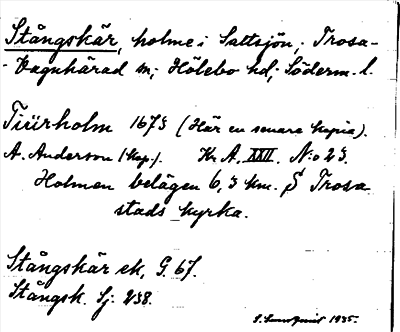 Stångskär, holme i Saltsjön, Trosa-
-Vagnhärad sn; Hölebo hd; Söderm. l.
Tiurholm 1673 (Här en senare kopia).
A. Anderson (kop.). Kr. A. XXII. N:o 23.
Holmen belägen 6,3 km. S Trosa
stads kyrka.
Stångskär ek, G. 67.
Stångsk. Sj: 238.
1935.